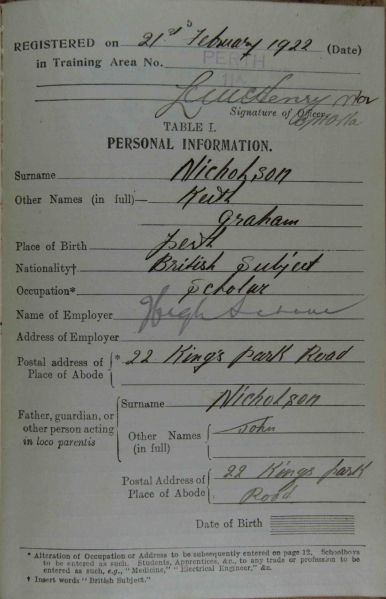 REGISTERED on 21st February 1922 (Date)
in Training Area No. PERTH
Signature of Officer
TABLE I.
PERSONAL INFORMATION.
Surname Nicholson
Other Names (in full)— Keith
Graham
Place of Birth Perth
Nationality† British Subject
Occupation* Scholar
Name of Employer High School
Address of Employer
Postal address of Place of Abode * 22 King's Park Road
Father, guardian, or other person acting in loco parentis
Surname Nicholson
Other Names (in full) John
Postal Address of Place of Abode 22 Kings Park
Road
Date of Birth
* Alteration of Occupation or Address to be subsequently entered on page 12. Schoolboys
to be entered as such. Students, Apprentices, &c., to any trade or profession to be
entered as such, e.g., "Medicine," "Electrical Engineer," &c.
† Insert words "British Subject."